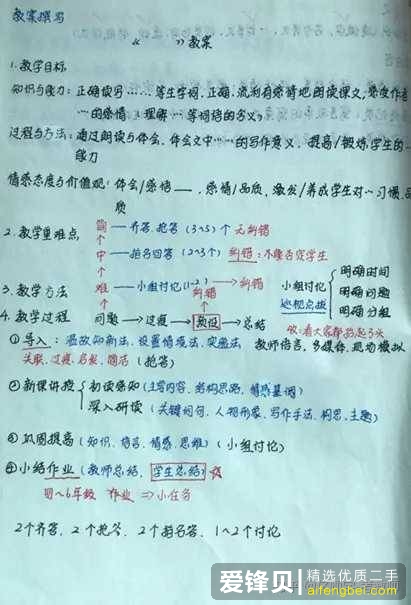 教案撰写
《 》教案
1.教学目标
知识与能力：正确读写……等生字词，正确、流利有感情地朗读课文，感受作者
…的感情，理解…等词语的含义；
过程与方法：通过朗读与体会，体会文中…的写作意义，提高/锻炼学生的…
能力
情感态度与价值观：体会/感悟——，感情/品质，激发/养成学生对…习惯、品
质
2.教学重难点
简—齐答、抢答（3~5）个 无纠错
中—指名回答（2~3个）纠错：不能否定学生
3.教学方法
难—小组讨论（1~2）→纠错
纠错
小组讨论
巡视点拨
明确时间
明确问题
明确分组
4.教学过程
问题→过渡→预设→总结
①导入：温故知新法、设置情境法、突悬法 教师语言，多媒体，现场模拟
关联、过渡、启发、简洁（抢答）
②新课讲授
初读感知（主写内容、结构思路、情感基调）
深入研读（关键词句、人物形象、写作手法、构思、主题）
③巩固提高（知识、语言、情感、思维）（小组讨论）
④小结作业（教师总结，学生总结）☆
1~6年级 作业⇒小任务
2个齐答、2个抢答、2个指名答、1~2个讨论
爱锋贝
精选优质二手
aifengbei.com